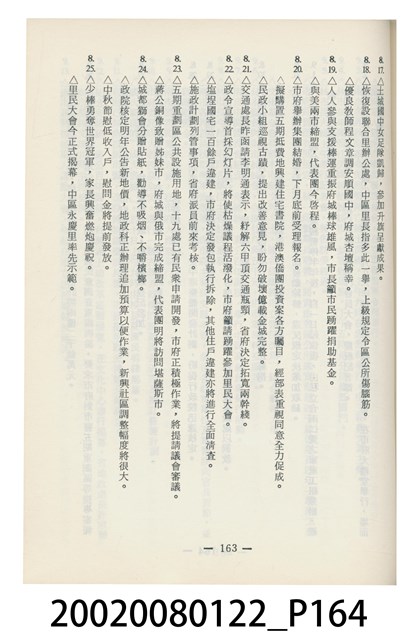 8.17.△土城國中女足隊凱歸，參加升旗呈獻成果。
8.18.△恢復設聯合里辦公處，中區里長指多此一舉，上級規定令區公所傷腦筋。
△優良教師程文章調安順國中，府城杏壇稱幸。
8.19.△人人參與支援棒運重振府城棒球雄風，市長籲市民踴躍捐助基金。
△與美兩市締盟，代表團今啓程。
8.20.△市府舉辦集團結婚，下月底前受理報名。
△擬購置五期抵費地興建住宅書院，港澳僑團投資案各方矚目，經部表重視同意全力促成。
△民政小組巡視古蹟，提出改善意見，盼勿破壞億載金城完整。
8.21.△交通處長昨函請李明通表示，紓解六甲頂交通瓶頸，省府決定拓寬兩幹綫。
8.22.△政令宣導首採幻灯片，將使枯燥議程活潑化，市府籲請踴躍參加里民大會。
△塩埕國宅一百餘戶違建，市府決定發包執行拆除，其他住戶違建亦將進行全面清查。
△施政計劃列管事項，省府派員前來考核。
8.23.△五期重劃區公共設施用地，十九處已有民衆申請開發，市府正積極作業，將提請議會審議。
△蔣公銅像致贈姊妹市，府城與俄市完成締盟，代表團明將訪問堪薩斯市。
8.24.△城都獅會分贈貼紙，勸導不吸烟、不嚼檳榔。
△政院核定明年公告新地價，地政科正辦理追加預算以便作業，新興社區調整幅度將很大。
△中秋節慰低收入戶，慰問金將提前發放。
8.25.△少棒勇奪世界冠軍，家長興奮燃炮慶祝。
△里民大會今正式揭幕，中區永慶里率先示範。
— 163 —
20020080122_P164